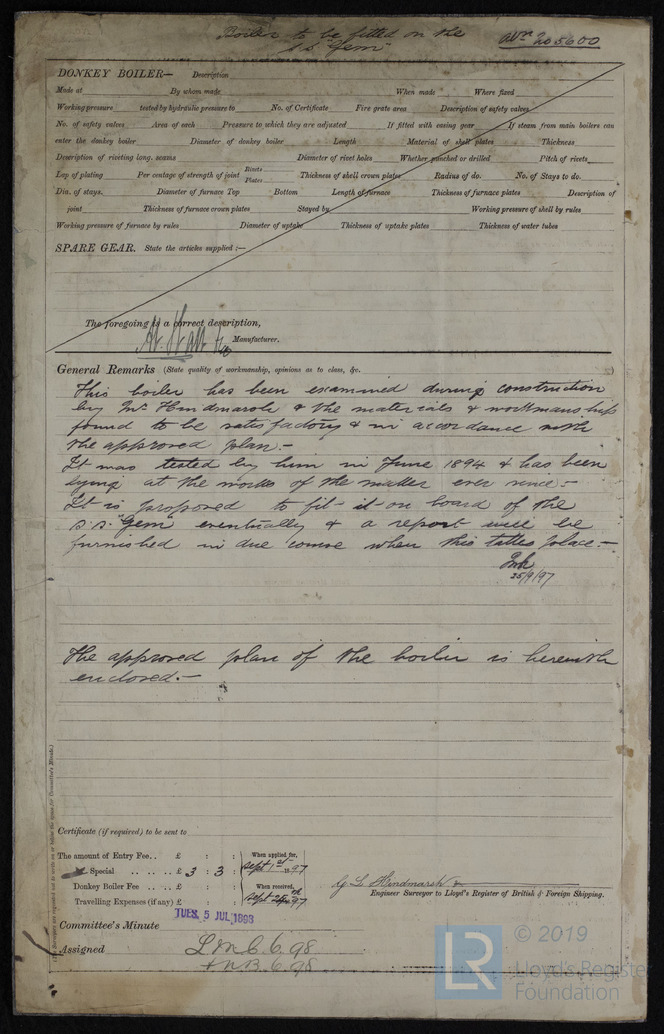 Boiler to be fitted on the
S.S. "Gem"
205600
DONKEY BOILER— Description
Made at By whom made When made Where fixed
Working pressure tested by hydraulic pressure to No. of Certificate Fire grate area Description of safety valves
No. of safety valves Area of each Pressure to which they are adjusted If fitted with easing gear If steam from main boilers can
enter the donkey boiler Diameter of donkey boiler Length Material of shell plates Thickness
Description of riveting long. seams Diameter of rivet holes Whether punched or drilled Pitch of rivets
Lap of plating Per centage of strength of joint Rivets Plates Thickness of shell crown plates Radius of do. No. of Stays to do.
Dia. of stays. Diameter of furnace Top Bottom Length of furnace Thickness of furnace plates Description of
joint Thickness of furnace crown plates Stayed by Working pressure of shell by rules
Working pressure of furnace by rules Diameter of uptake Thickness of uptake plates Thickness of water tubes
SPARE GEAR. State the articles supplied :—
The foregoing is a correct description,
Manufacturer.
General Remarks (State quality of workmanship, opinions as to class, &c.
This boiler has been examined during construction
by Mr Hindmarsh & the materials & workmanship
found to be satisfactory & in accordance with
the approved plan.—
It was tested by him in June 1894 & has been
lying at the works of the maker ever since.—
It is proposed to fit it on board of the
S.S. "Gem" eventually & a report will be
furnished in due course when this takes place.—
25/9/97
The approved plan of the boiler is herewith
enclosed.—
Certificate (if required) to be sent to
The amount of Entry Fee.. £ : : When applied for,
Special .. .. .. £ 3 : 3 : Sept 1st 97
Donkey Boiler Fee .. .. £ : : When received,
Travelling Expenses (if any) £ : : Sept 97
G L Hindmarsh
Engineer Surveyor to Lloyd's Register of British & Foreign Shipping.
TUES. 5 JUL 1898
Committee's Minute
Assigned L M C 6.98
N.B. 6.98
LR
© 2019
Lloyd's Register
Foundation